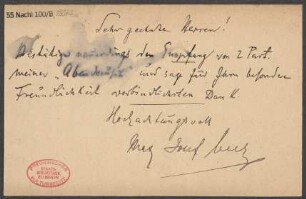 55 Nachl 100/B
Sehr geehrte Herren!
Bestätige neuerdings den Empfang von 2 Part.
meiner „Abendmusik" und sage für Ihre besondere
Freundlichkeit verbindlichsten Dank
Hochachtungsvoll
Max Josef Beer